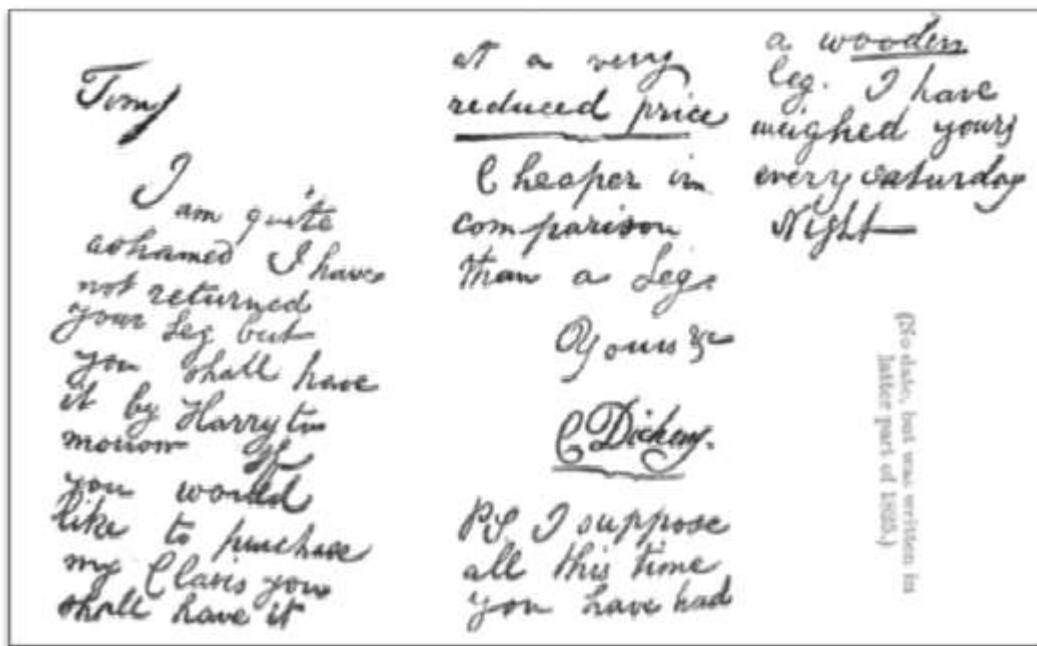 Tom
I am quite
ashamed I have
not returned
your Leg but
you shall have
it by Harry to
morrow If
you would
like to purchase
my Clavis you
shall have it
at a very
reduced price
Cheaper in
comparison
than a Leg.
Yours &c
C Dickens.
PS I suppose
all this time
you have had
a wooden
leg. I have
weighed yours
every saturday
Night
(No date, but was written in
latter part of 1825.)